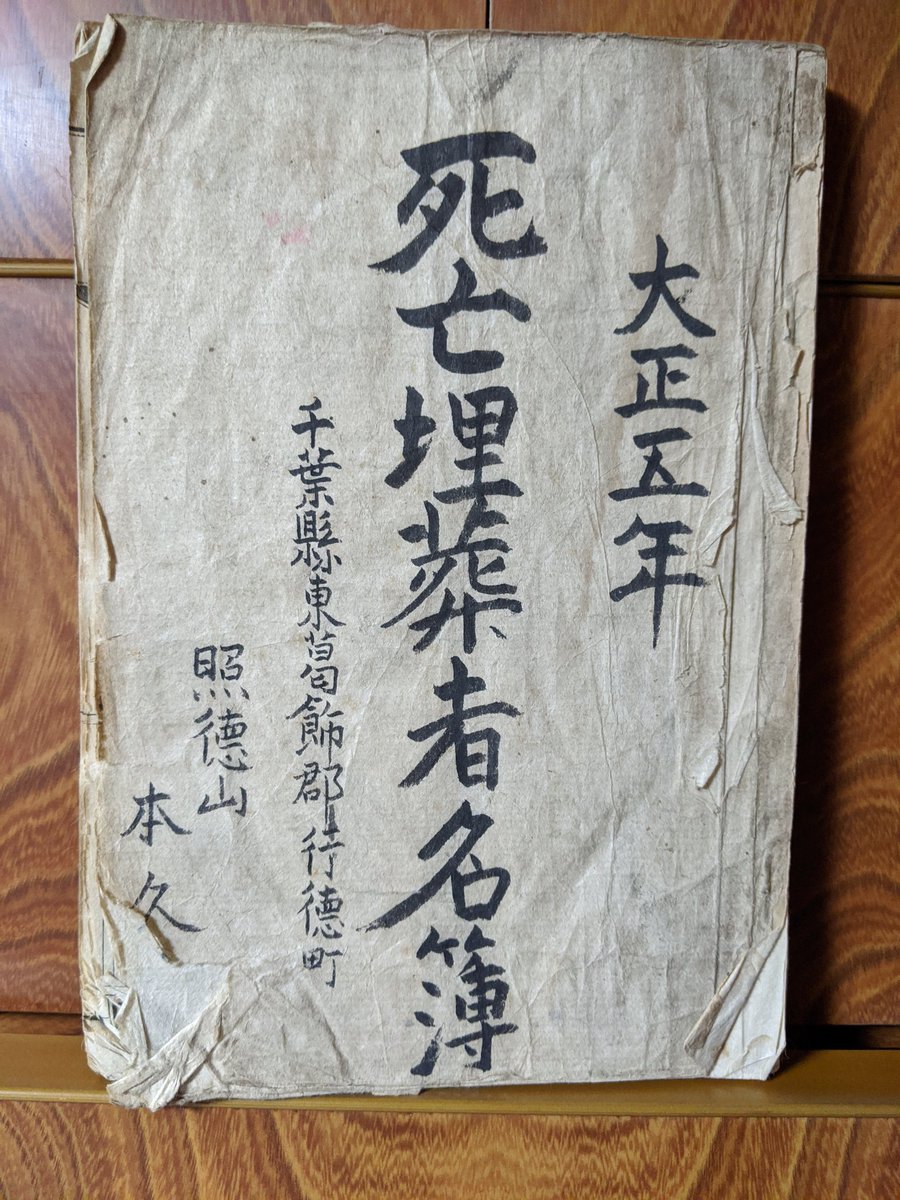 大正五年
死亡埋葬者名簿
千葉縣東葛飾郡行德町
照德山
本久